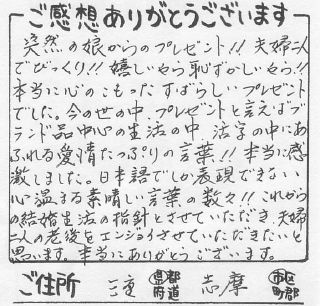 ご感想ありがとうございます
突然の娘からのプレゼント!! 夫婦二人
でびっくり!! 嬉しいやら恥ずかしいやら!!
本当に心のこもったすばらしいプレゼント
でした。今の世の中、プレゼントと言えばブ
ランド品中心の生活の中、法字の中にあ
ふれる愛情たっぷりの言葉!! 本当に感
激しました。日本語でしか表現できない
心温まる素晴しい言葉の数々!! これから
の結婚生活の指針とさせていただき、夫婦
二人の老後をエンジョイさせていただきたいと
思います。本当にありがとうございます。
ご住所 三重 都道府県 志摩 市区町郡